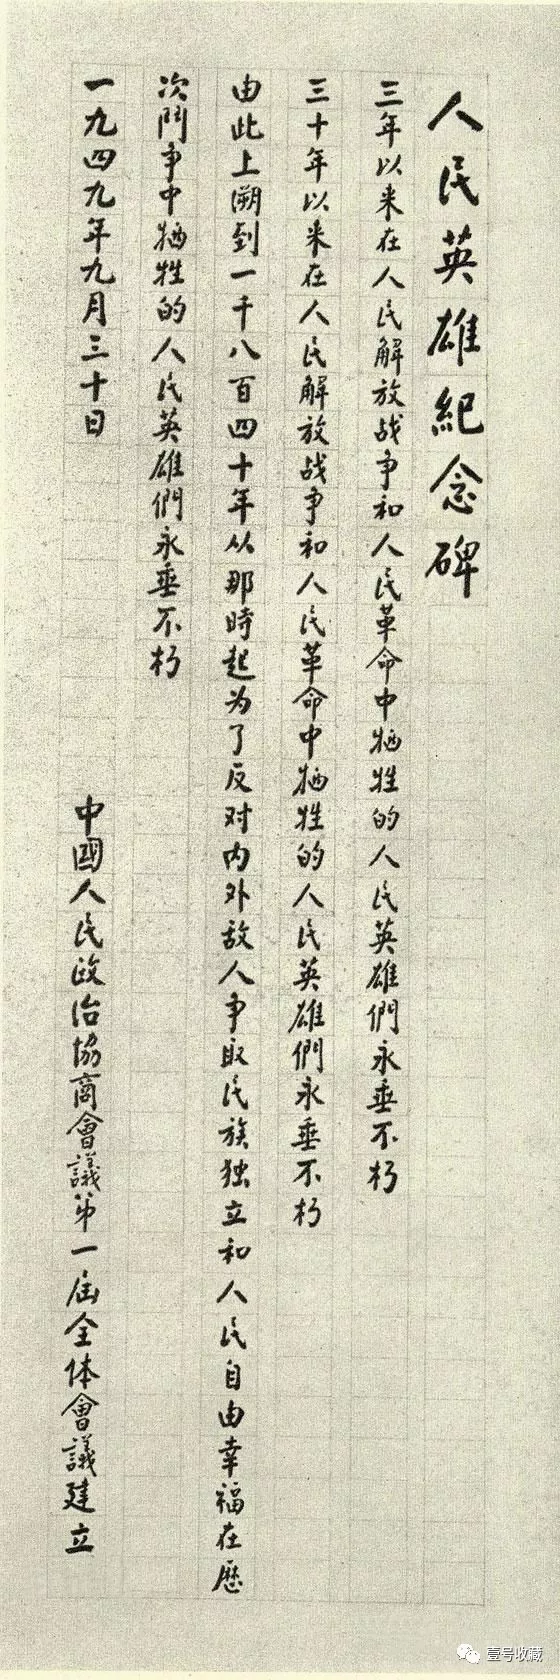 人民英雄紀念碑
三年以来在人民解放战争和人民革命中牺牲的人民英雄們永垂不朽
三十年以来在人民解放战争和人民革命中牺牲的人民英雄們永垂不朽
由此上溯到一千八百四十年从那時起为了反对内外敌人争取民族独立和人民自由幸福在歷
次鬥争中牺牲的人民英雄們永垂不朽
一九四九年九月三十日
中國人民政治協商會議第一届全体會議建立
壹号收藏